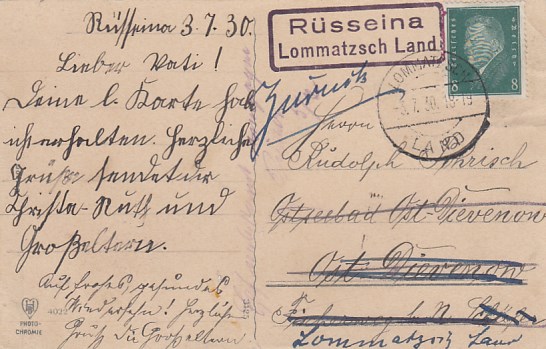 Rüsseina 3.7.30.
Lieber Vati!
Deine l. Karte hab
ich erhalten. Herzliche
Grüße sendet dir
Christa-Ruth und
Großeltern.
Auf frohes gesundes
Wiedersehn! Herzliche
Grüße die Großeltern.
4022
PHOTO-
CHROMIE
Rüsseina
Lommatzsch Land
LOMMATZSCH
7.30.18-19
LAND
8 8
Zurück
Herrn
Rudolph
Ostseebad Ost-Dievenow
Ost Dievenow
Lommatzsch Land